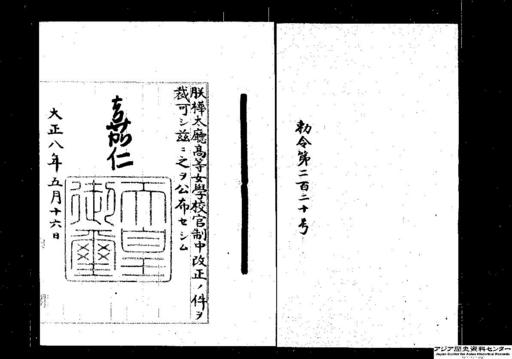 勅令第二百二十号
朕樺太廳高等女學校官制中改正ノ件ヲ
裁可シ玆ニ之ヲ公布セシム
嘉仁
天皇
御璽
大正八年五月十六日
アジア歴史資料センター
Japan Center for Asian Historical Records